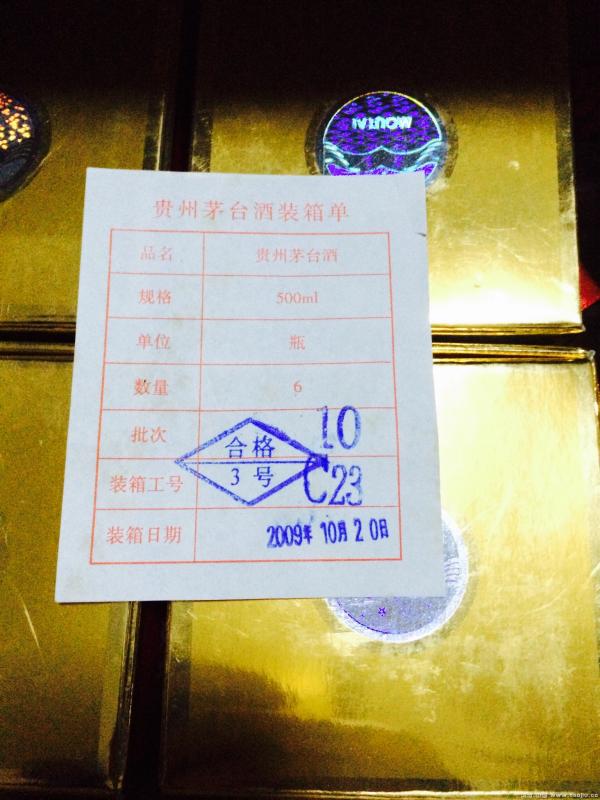 MOUTAI
贵州茅台酒装箱单
品名 贵州茅台酒
规格 500ml
单位 瓶
数量 6
批次 10
合格
3 号
装箱工号 C23
装箱日期 2009年 10月 20日